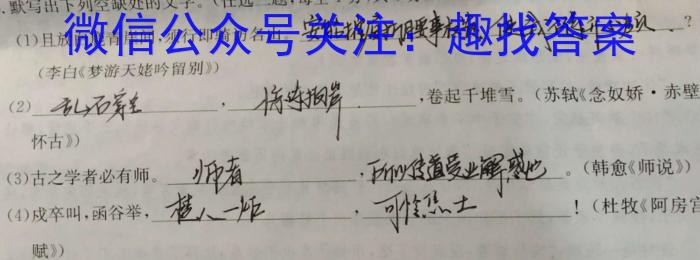 .默写出下列空缺处的文字。
微信公众号关注：趣找答案
(1)且放白鹿青崖间，须行即骑访名山。安能摧眉折腰事权贵，使我不得开心颜？
(李白《梦游天姥吟留别》)
(2) 乱石穿空，惊涛拍岸，卷起千堆雪。(苏轼《念奴娇·赤壁
怀古》)
(3)古之学者必有师。师者，所以传道受业解惑也。(韩愈《师说》)
(4)戍卒叫，函谷举，楚人一炬，可怜焦土！(杜牧《阿房宫
赋》)